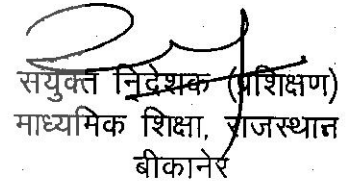 सयुक्त निदेशक (प्रशिक्षण)
माध्यमिक शिक्षा, राजस्थान
बीकानेर